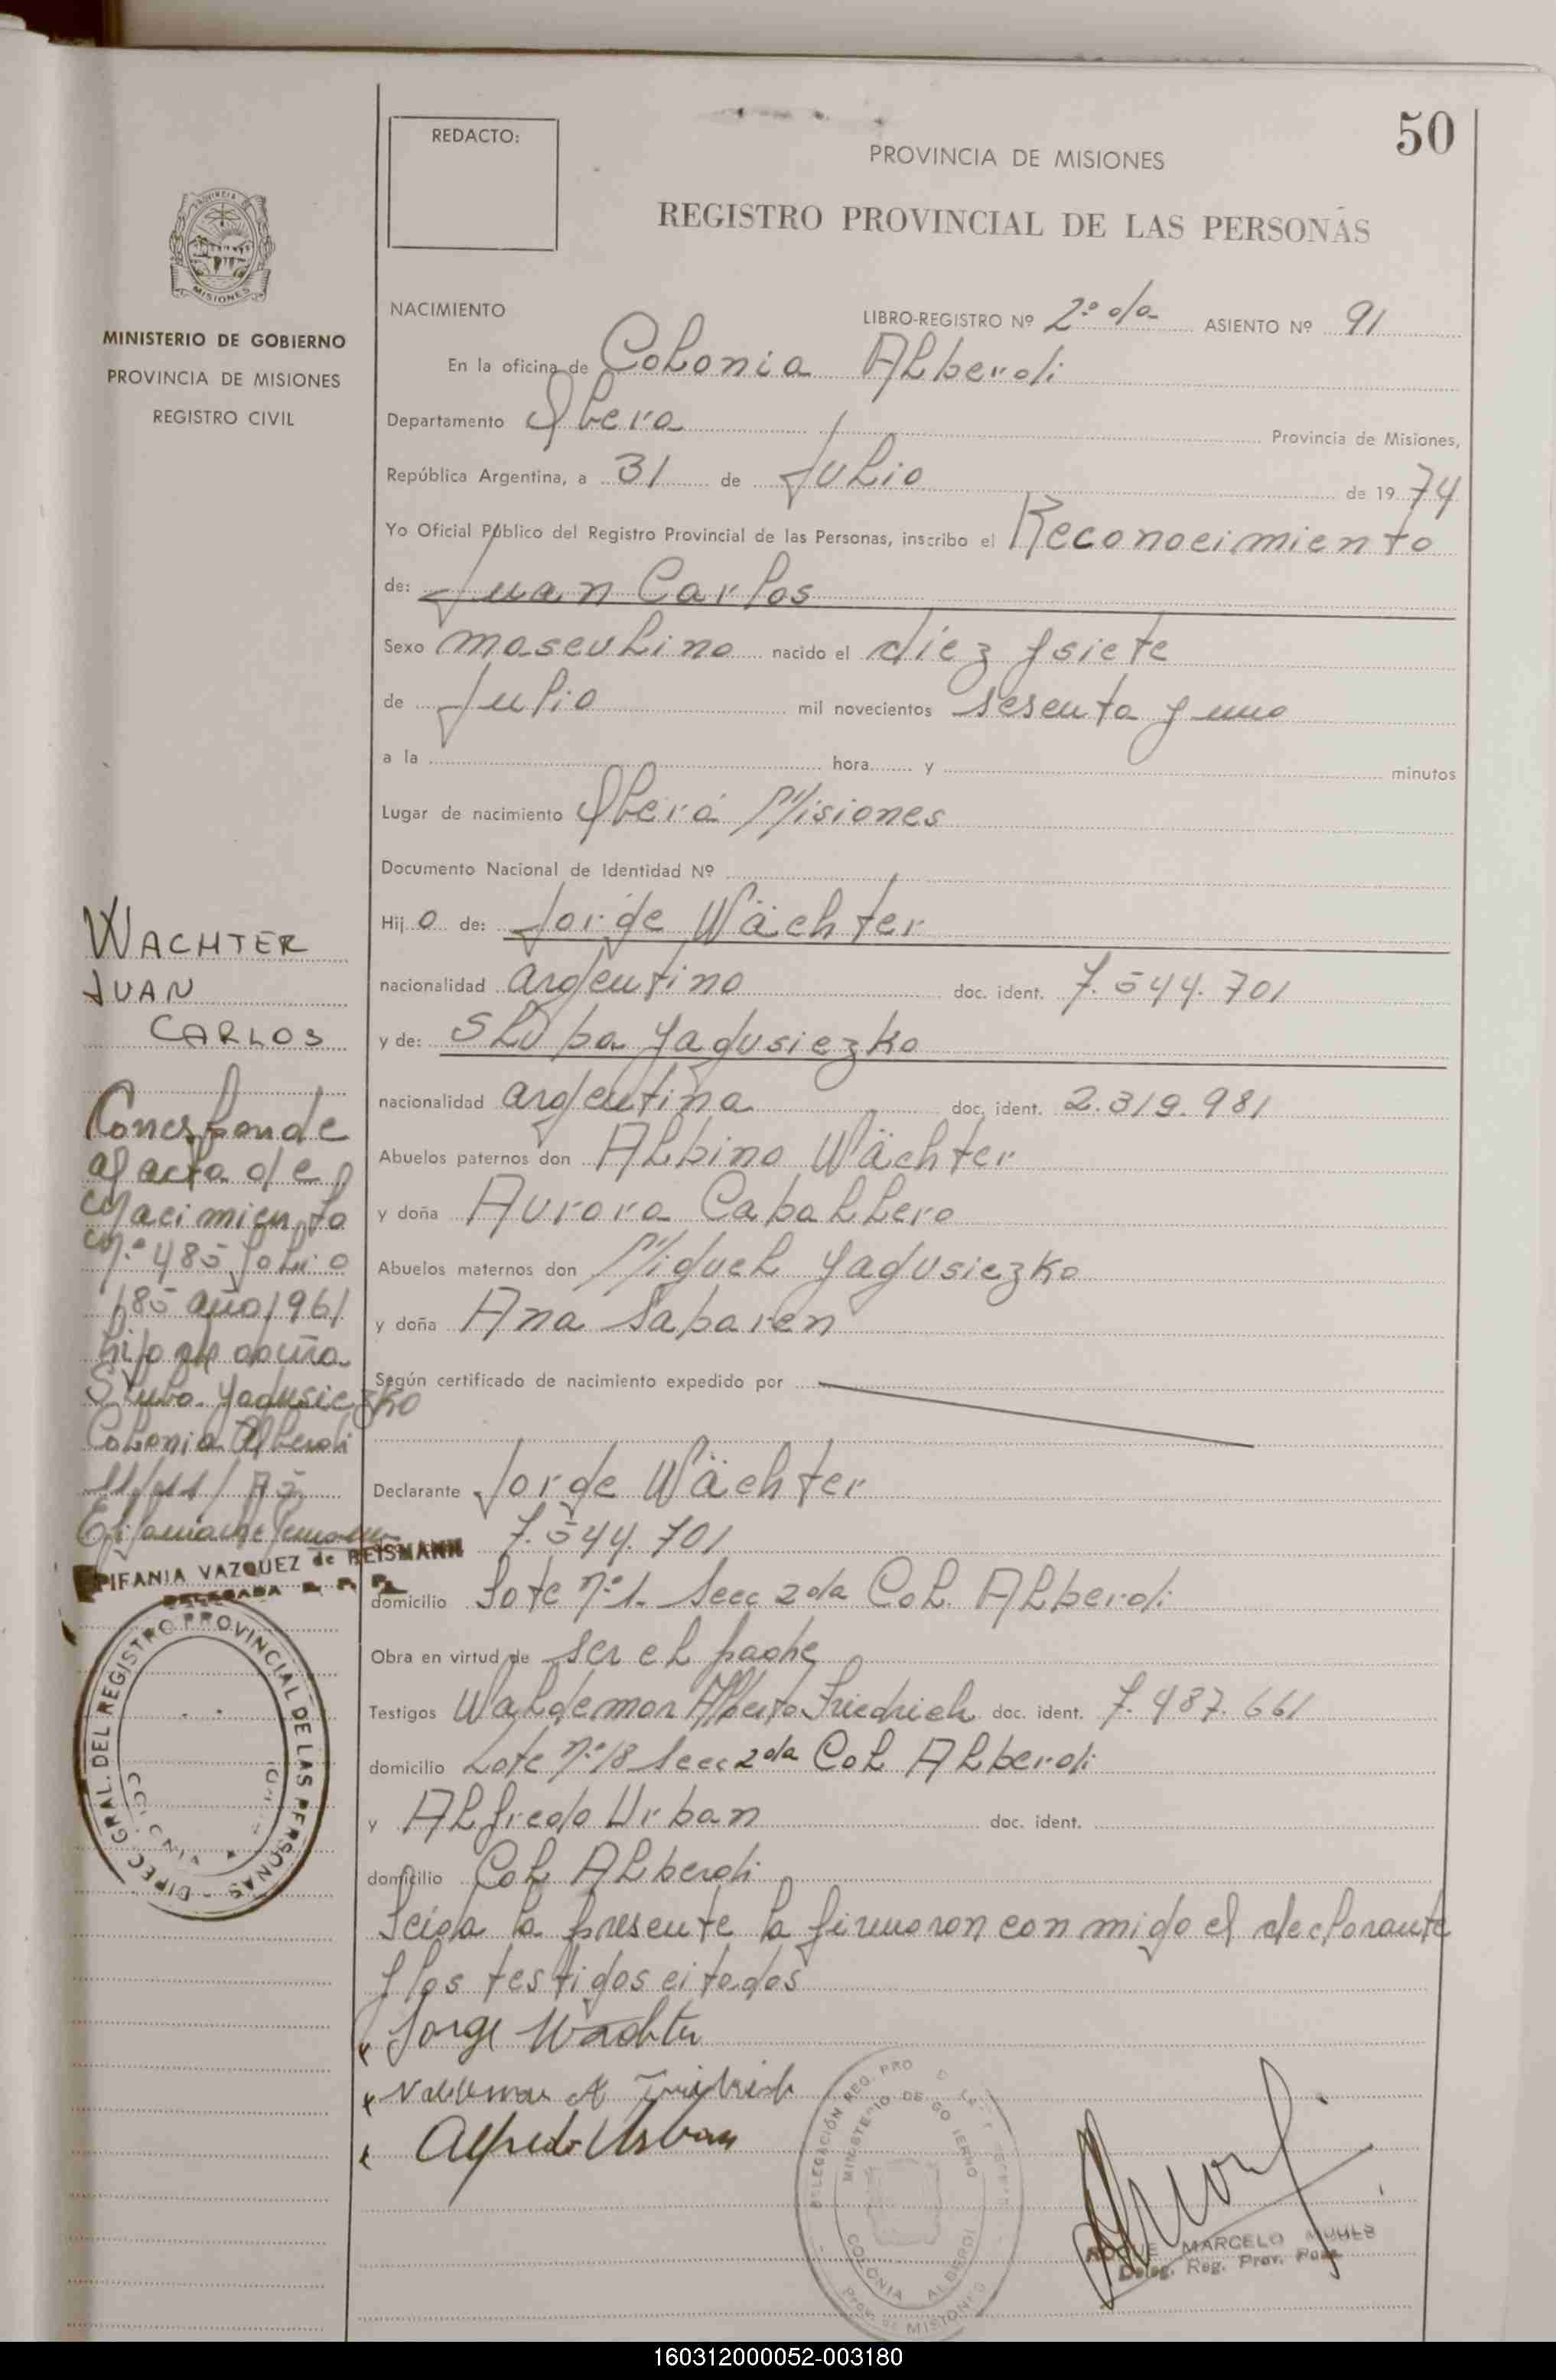 50
REDACTO:
PROVINCIA DE MISIONES
REGISTRO PROVINCIAL DE LAS PERSONAS
MISIONES
MINISTERIO DE GOBIERNO
PROVINCIA DE MISIONES
REGISTRO CIVIL
NACIMIENTO LIBRO-REGISTRO Nº 2º da ASIENTO Nº 91
En la oficina de Colonia Alberdi
Departamento Obera Provincia de Misiones,
República Argentina, a 31 de Julio de 1974
Yo Oficial Público del Registro Provincial de las Personas, inscribo el Reconocimiento
de: Juan Carlos
Sexo masculino nacido el diez y siete
de Julio mil novecientos sesenta y uno
a la hora y minutos
Lugar de nacimiento Oberá Misiones
Documento Nacional de Identidad Nº
Hijo de: Jorge Wächter
nacionalidad argentino doc. ident. 7.544.701
y de: Sluba Yagusiezko
nacionalidad argentina doc. ident. 2.319.981
Abuelos paternos don Albino Wächter
y doña Aurora Caballero
Abuelos maternos don Miguel Yagusiezko
y doña Ana Sabaren
Según certificado de nacimiento expedido por
Declarante Jorge Wächter
7.544.701
domicilio Lote nº 1. Secc 2da Col. Alberdi
Obra en virtud de ser el padre
Testigos Waldemar Alberto Friedrich doc. ident. 7.487.661
domicilio Lote nº 18 Secc 2da Col Alberdi
y Alfredo Urban doc. ident.
domicilio Col Alberdi
Leida la presente la firmaron conmigo el declarante
y los testigos citados
Jorge Wachter
Valdemar A Friedrich
Alfredo Urban
WACHTER
JUAN
CARLOS
Corresponde
al acta de
Nacimiento
Nº 485 folio
185 año 1961
hijo de doña
Sluba Yagusiezko
Colonia Alberdi
11/11/75
EPIFANIA VAZQUEZ de REISMANN
DELEGADA R. P. P.
DIREC. GRAL. DEL REGISTRO PROVINCIAL DE LAS PERSONAS
DELEGACIÓN REG. PRO
MINISTERIO DE GOBIERNO
COLONIA ALBERDI
PROV. DE MISIONES
ROQUE MARCELO
Deleg. Reg. Prov. Pers.
160312000052-003180